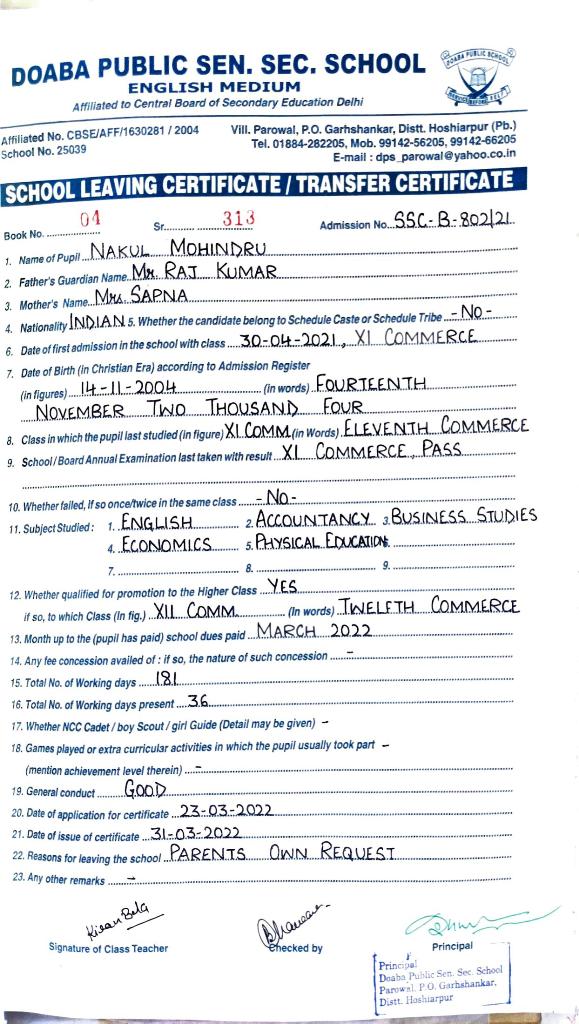 DOABA PUBLIC SEN. SEC. SCHOOL
ENGLISH MEDIUM
Affiliated to Central Board of Secondary Education Delhi
DOABA PUBLIC SCHOOL
Affiliated No. CBSE/AFF/1630281 / 2004
School No. 25039
Vill. Parowal, P.O. Garhshankar, Distt. Hoshiarpur (Pb.)
Tel. 01884-282205, Mob. 99142-56205, 99142-66205
E-mail : dps_parowal@yahoo.co.in
SCHOOL LEAVING CERTIFICATE / TRANSFER CERTIFICATE
Book No. 04 Sr. 313 Admission No. SSC-B-802/21
1. Name of Pupil NAKUL MOHINDRU
2. Father's Guardian Name Mr. RAJ KUMAR
3. Mother's Name Mrs. SAPNA
4. Nationality INDIAN 5. Whether the candidate belong to Schedule Caste or Schedule Tribe - No -
6. Date of first admission in the school with class 30-04-2021, XI COMMERCE
7. Date of Birth (in Christian Era) according to Admission Register
(in figures) 14-11-2004 (in words) FOURTEENTH
NOVEMBER TWO THOUSAND FOUR
8. Class in which the pupil last studied (in figure) XI COMM. (in Words) ELEVENTH COMMERCE
9. School / Board Annual Examination last taken with result XI COMMERCE, PASS
10. Whether failed, if so once/twice in the same class - No -
11. Subject Studied : 1. ENGLISH 2. ACCOUNTANCY 3. BUSINESS STUDIES
4. ECONOMICS 5. PHYSICAL EDUCATION 6.
7. 8. 9.
12. Whether qualified for promotion to the Higher Class YES
if so, to which Class (In fig.) XII COMM. (In words) TWELFTH COMMERCE
13. Month up to the (pupil has paid) school dues paid MARCH 2022
14. Any fee concession availed of : if so, the nature of such concession -
15. Total No. of Working days 181
16. Total No. of Working days present 36
17. Whether NCC Cadet / boy Scout / girl Guide (Detail may be given) -
18. Games played or extra curricular activities in which the pupil usually took part -
(mention achievement level therein) -
19. General conduct GOOD
20. Date of application for certificate 23-03-2022
21. Date of issue of certificate 31-03-2022
22. Reasons for leaving the school PARENTS OWN REQUEST
23. Any other remarks -
Kiran Bala
Signature of Class Teacher Checked by Principal
Principal
Doaba Public Sen. Sec. School
Parowal, P.O. Garhshankar,
Distt. Hoshiarpur